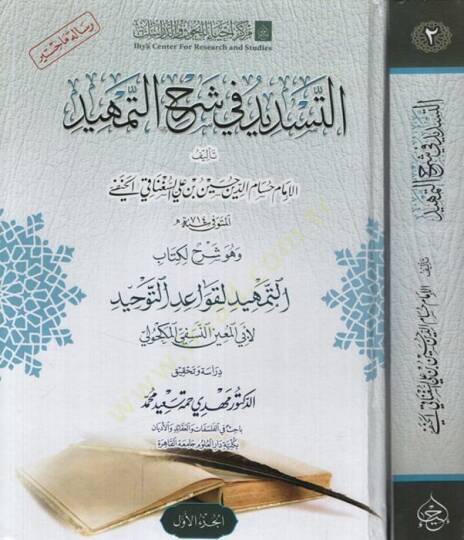 مركز إحياء للبحوث والدراسات
Ihya Center For Research and Studies
رسالة ماجستير
التسديد في شرح التمهيد
تأليف
الإمام حسام الدين حسين بن علي السغناقي الحنفي
المتوفى ٧١٤ هـ
وهو شرح لكتاب
التمهيد لقواعد التوحيد
لأبي المعين النسفي المكحولي
دراسة وتحقيق
الدكتور مهدي حمة سعيد محمد
باحث في الفلسفات والعقائد والأديان
بكلية دار العلوم جامعة القاهرة
الجزء الأول
٢
التسديد في شرح التمهيد
تأليف
الإمام حسام الدين حسين بن علي السغناقي الحنفي